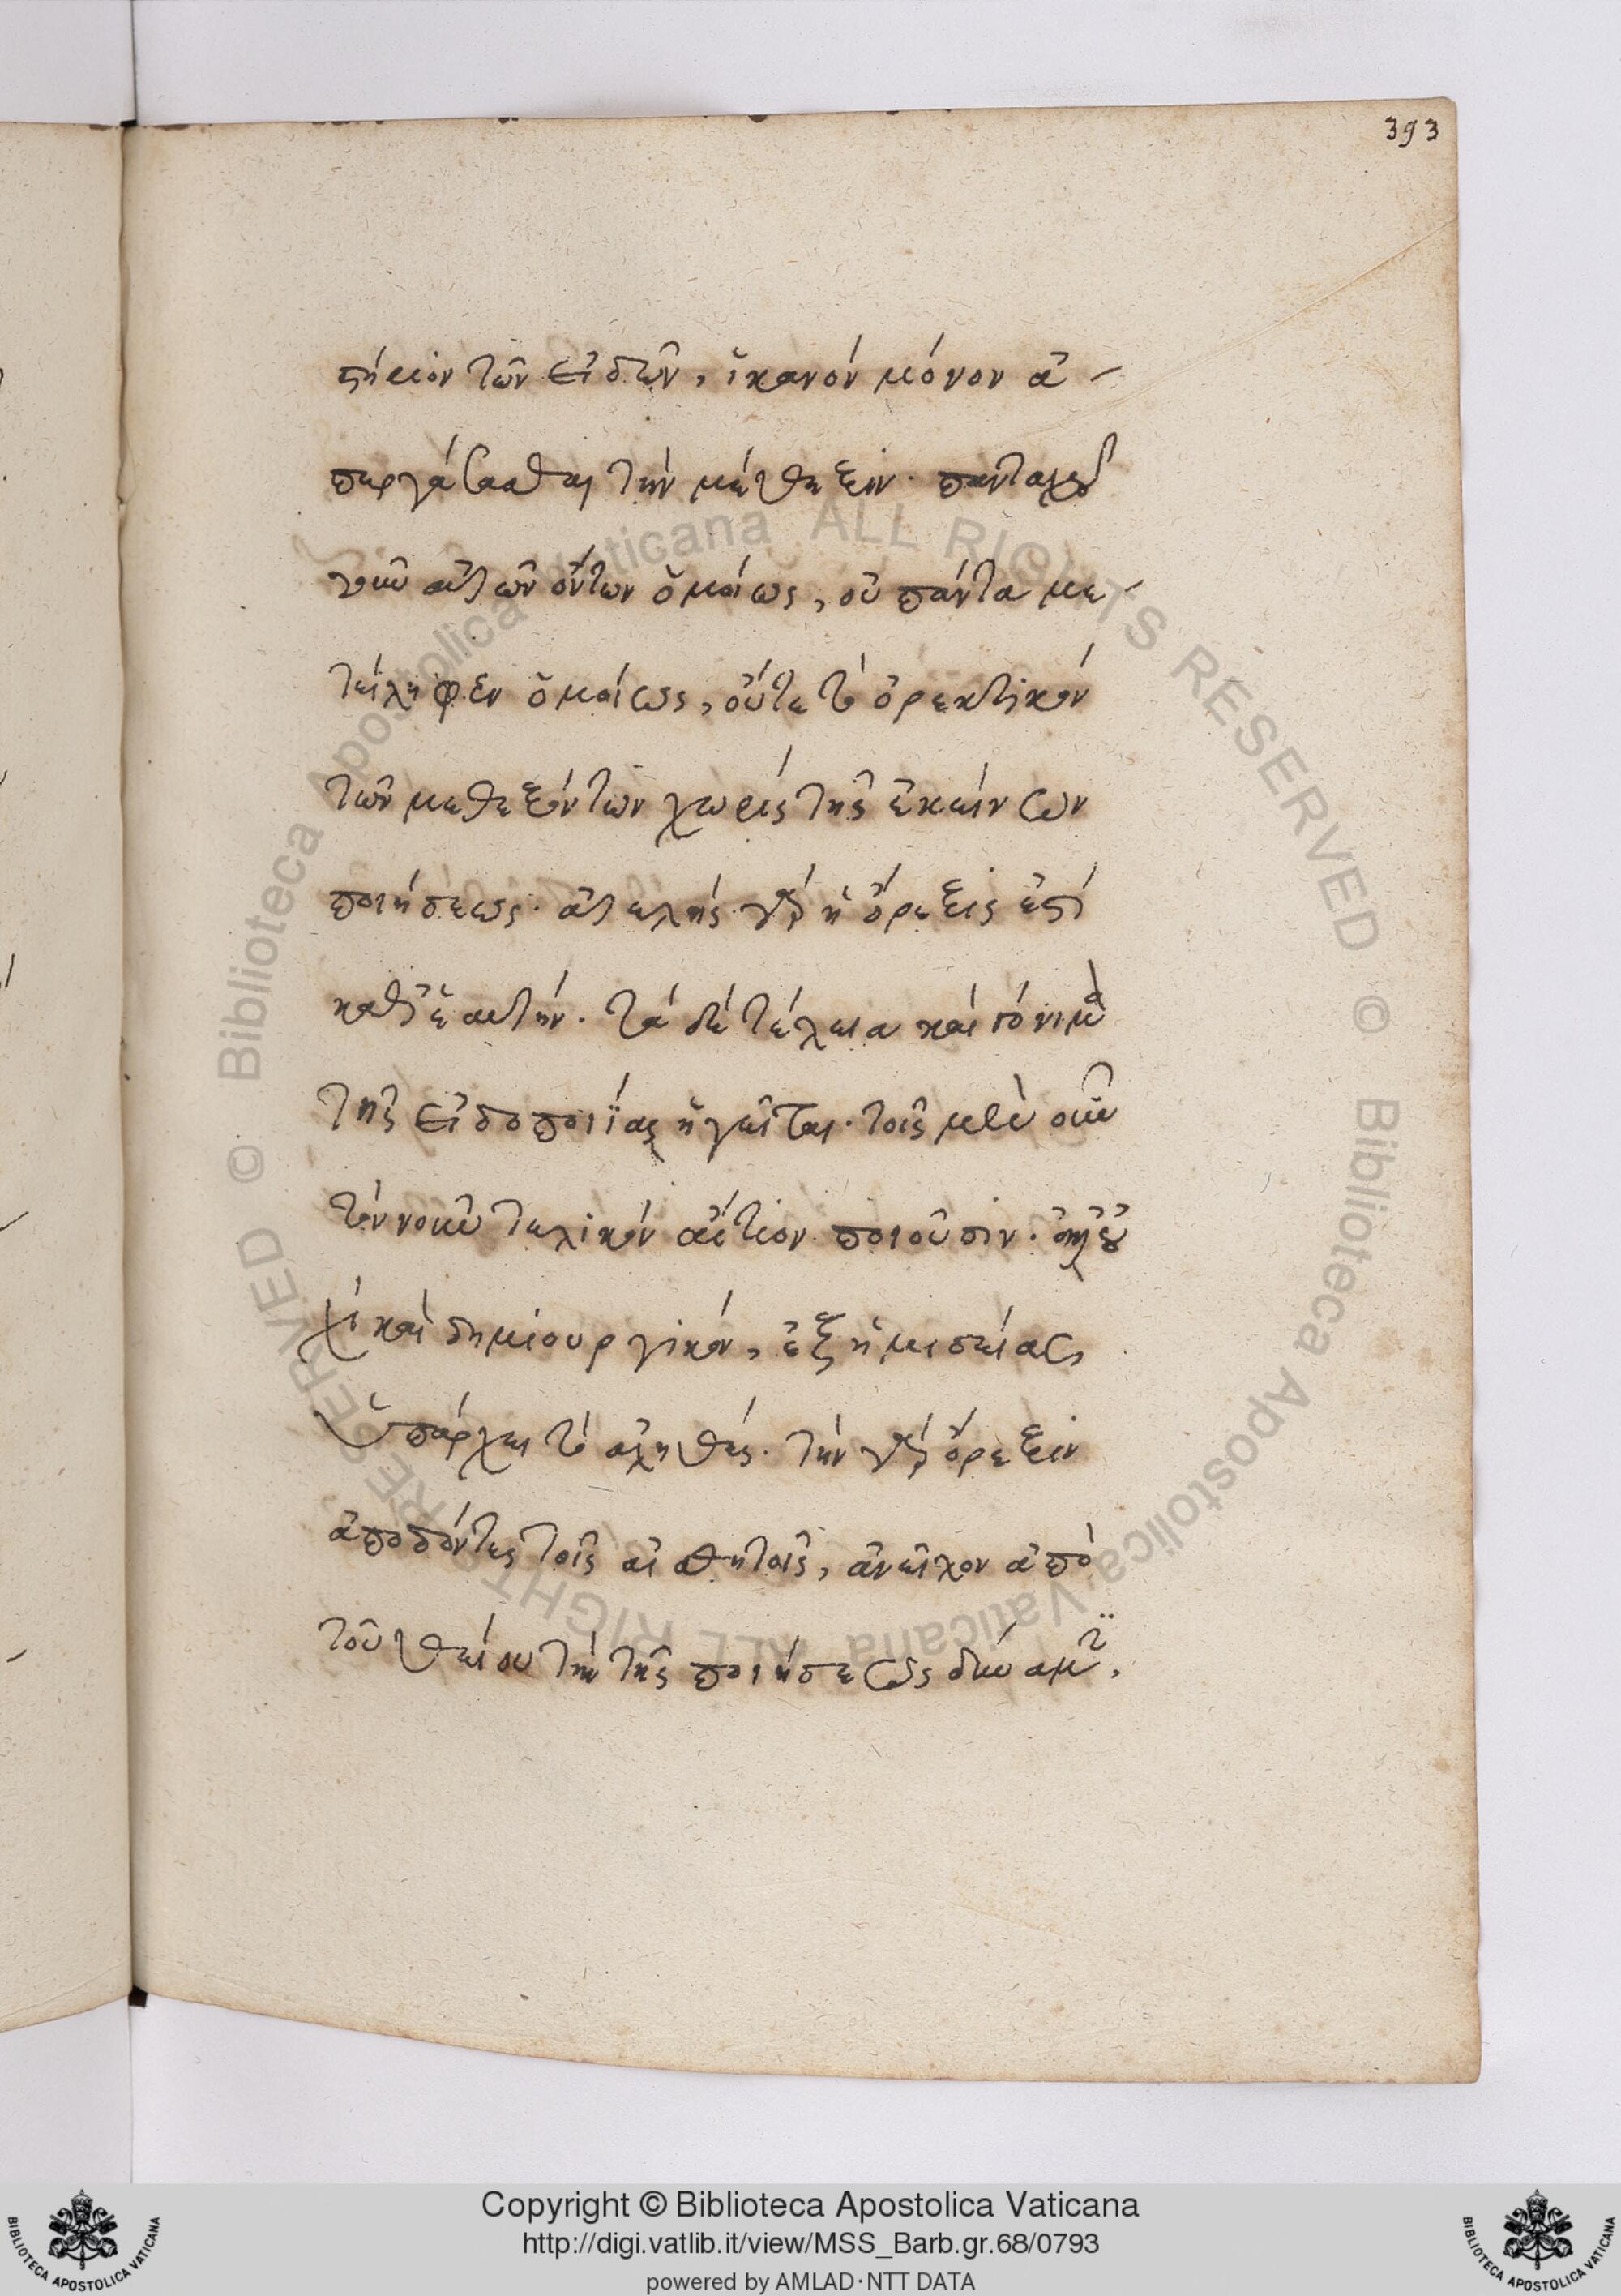 393
στήριον τῶν εἰδῶν, ἱκανὸν μόνον ἀ-
περγάσασθαι τὴν μέθεξιν. πανταχοῦ
γοῦν αὐτῶν ὄντων ὁμοίως, οὐ πάντα με-
τείληφεν ὁμοίως, οὔτε τὸ ὀρεκτικὸν
τῶν μεθεξόντων χωρὶς τῆς ἐκείνων
ποιήσεως. ἀτελὴς γὰρ ἡ ὄρεξις ἐστὶ
καθ' ἑαυτήν. τὰ δὲ τέλεια καὶ γόνιμα
τῆς εἰδοποιΐας ἡγεῖται. τοῖς μὲν οὖν
τὸν νοῦν τελικὸν αἴτιον ποιοῦσιν. ἀλλ' οὐ
χὶ καὶ δημιουργικόν, ἐξ ἡμισείας,
ὑπάρχει τὸ ἀληθές. τὴν γὰρ ὄρεξιν
ἀποδόντες τοῖς αἰσθητοῖς, ἀνεῖλον ἀπὸ
τοῦ θείου τὴν τῆς ποιήσεως δύναμιν.
Copyright © Biblioteca Apostolica Vaticana
http://digi.vatlib.it/view/MSS_Barb.gr.68/0793
powered by AMLAD·NTT DATA
BIBLIOTECA APOSTOLICA VATICANA
BIBLIOTECA APOSTOLICA VATICANA
© Biblioteca Apostolica Vaticana ALL RIGHTS RESERVED
© Biblioteca Apostolica Vaticana ALL RIGHTS RESERVED